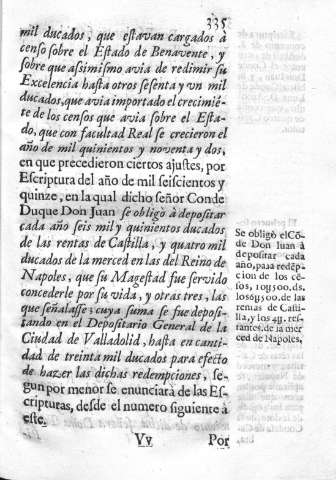 335
mil ducados, que estavan cargados à
censo sobre el Estado de Benavente, y
sobre que assimismo avia de redimir su
Excelencia hasta otros sesenta y vn mil
ducados, que avia importado el crecimiē-
te de los censos que avia sobre el Esta-
do, que con facultad Real se crecieron el
año de mil quinientos y noventa y dos,
en que precedieron ciertos ajustes, por
Escriptura del año de mil seiscientos y
quinze, en la qual dicho señor Conde
Duque Don Juan se obligò à depositar
cada año seis mil y quinientos ducados
de las rentas de Castilla, y quatro mil
ducados de la merced en las del Reino de
Napoles, que su Magestad fue servido
concederle por su vida, y otras tres, las
que señalasse; cuya suma se fue deposi-
tando en el Depositario General de la
Ciudad de Valladolid, hasta en canti-
dad de treinta mil ducados para efecto
de hazer las dichas redempciones, se-
gun por menor se enunciarà de las Es-
cripturas, desde el numero siguiente à
este.
Vv Por
Se obligò el Cō-
de Don Juan à
depositar cada
año, para redēp-
cion de los cē-
sos, 10y500. ds.
los 6y500. de las
rentas de Casti-
lla, y los 4y. res-
tantes, de la mer
ced de Napoles,